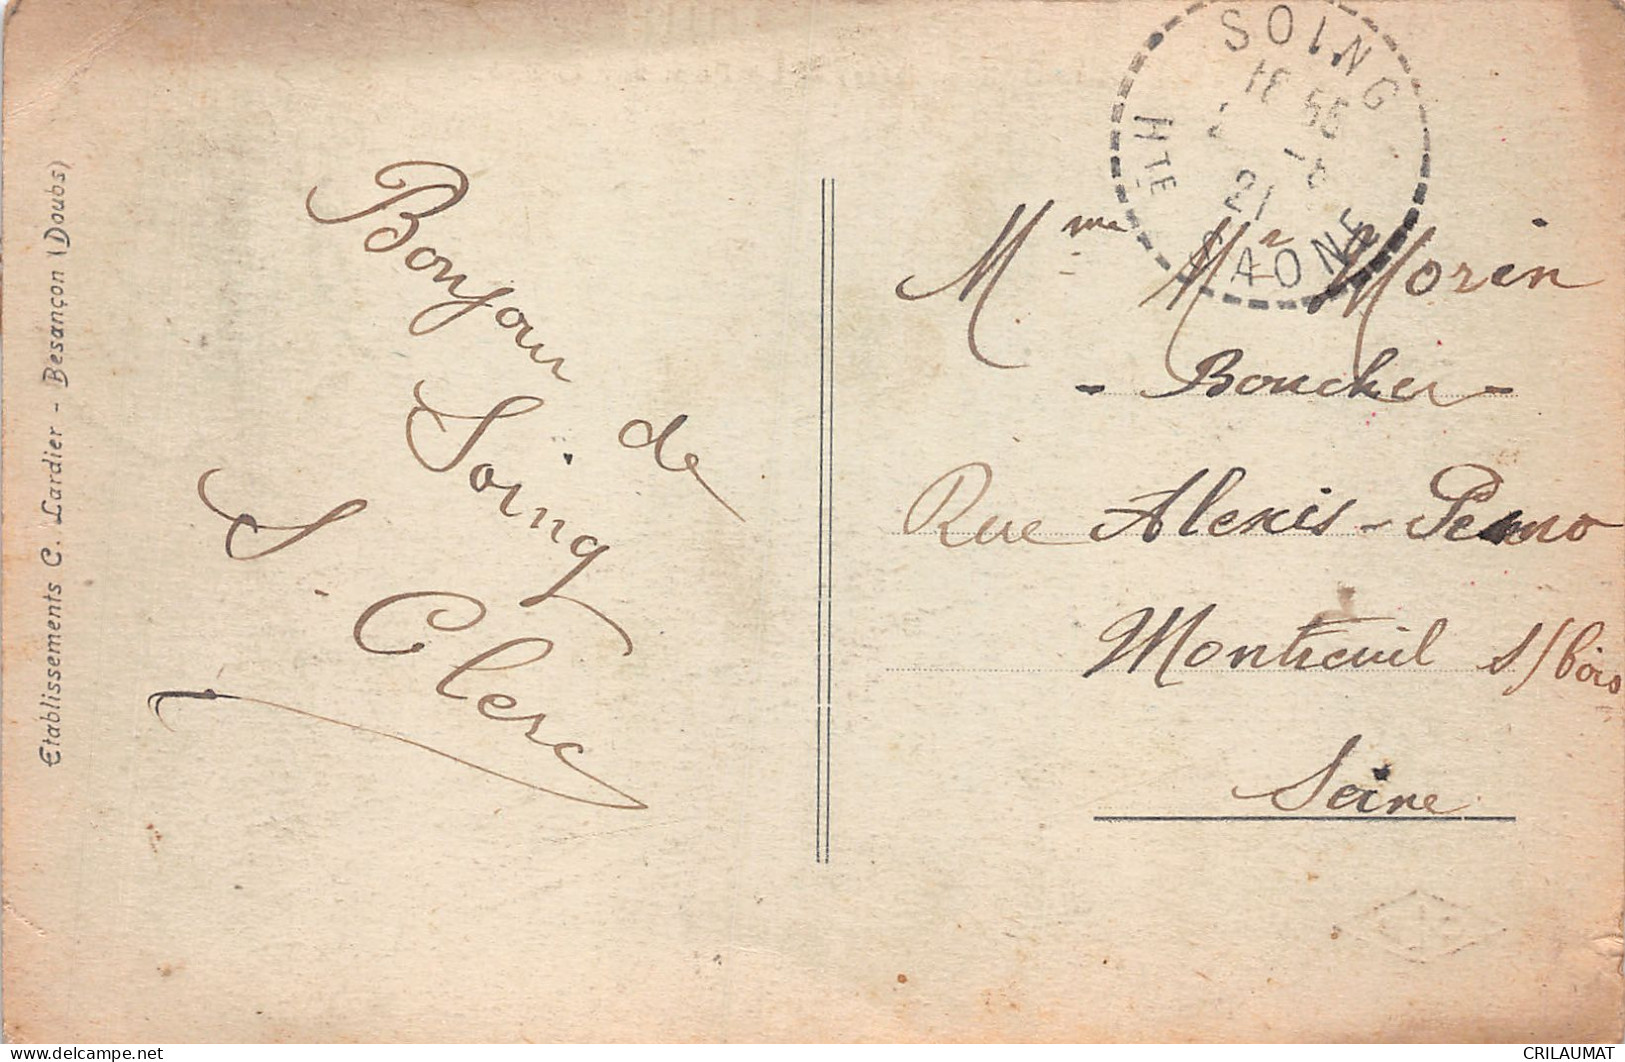 Etablissements C. Lardier - Besançon (Doubs)
Bonjour
de
Soing
S. Clerc
SOING
21
HTE SAONE
Mme Mr Morin
- Boucher -
Rue Alexis - Pesnno
Montreuil s/bois
Seine
CRILAUMAT